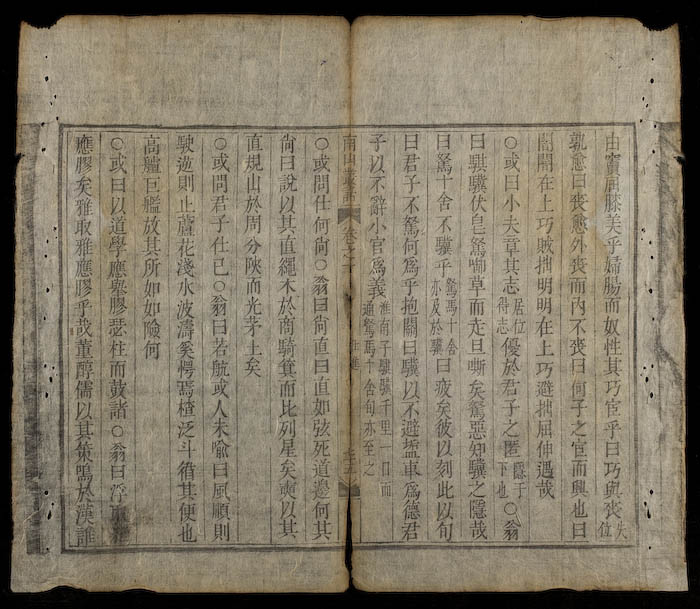 由竇屈膝美乎婦腸而奴性其巧宦乎曰巧與喪失位
孰愈曰喪愈外喪而內不喪曰何子之宦而興也曰
闇闇在上巧賊拙明明在上巧避拙屈伸遇哉
○或曰小夫章其志居位得志優於君子之匿隱于下也○翁
曰騏驥伏皂駑嚙草而走且嘶矣駑惡知驥之隱哉
曰駑十舍不驥乎駑馬十舍亦及於驥曰疲矣彼以刻此以旬
曰君子不駑何爲乎抱關曰驥以不避鹽車爲德君
子以不辭小官爲義淮南子騏驥千里一日而通駑馬十舍旬亦至之
南山叢語 卷之
○或問仕何尙○翁曰尙直曰直如弦死道邊何其
尙曰說以其直繩木於商騎箕而比列星矣奭以其
直規山於周分陜而光茅土矣
○或問君子仕已○翁曰若航或人未喩曰風順則
駛逆則止蘆花淺水波濤奚愕焉楂泛斗循其便也
高艫巨艦放其所如如險何
○或曰以道學應舉膠瑟柱而鼓諧○翁曰浮
應膠矣雅取雅應膠乎哉董醇儒以其策鳴於漢誰